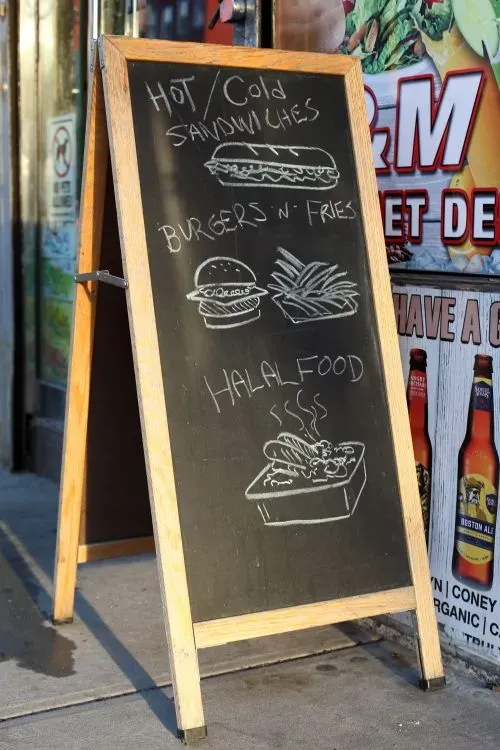 HOT / Cold
SANDWICHES
BURGERS 'N' FRIES
HALAL FOOD
&M
ET DE
HAVE A C
ANGRY ORCHARD
BOSTON ALE
YN | CONEY
RGANIC | C
TRULY
NO PETS